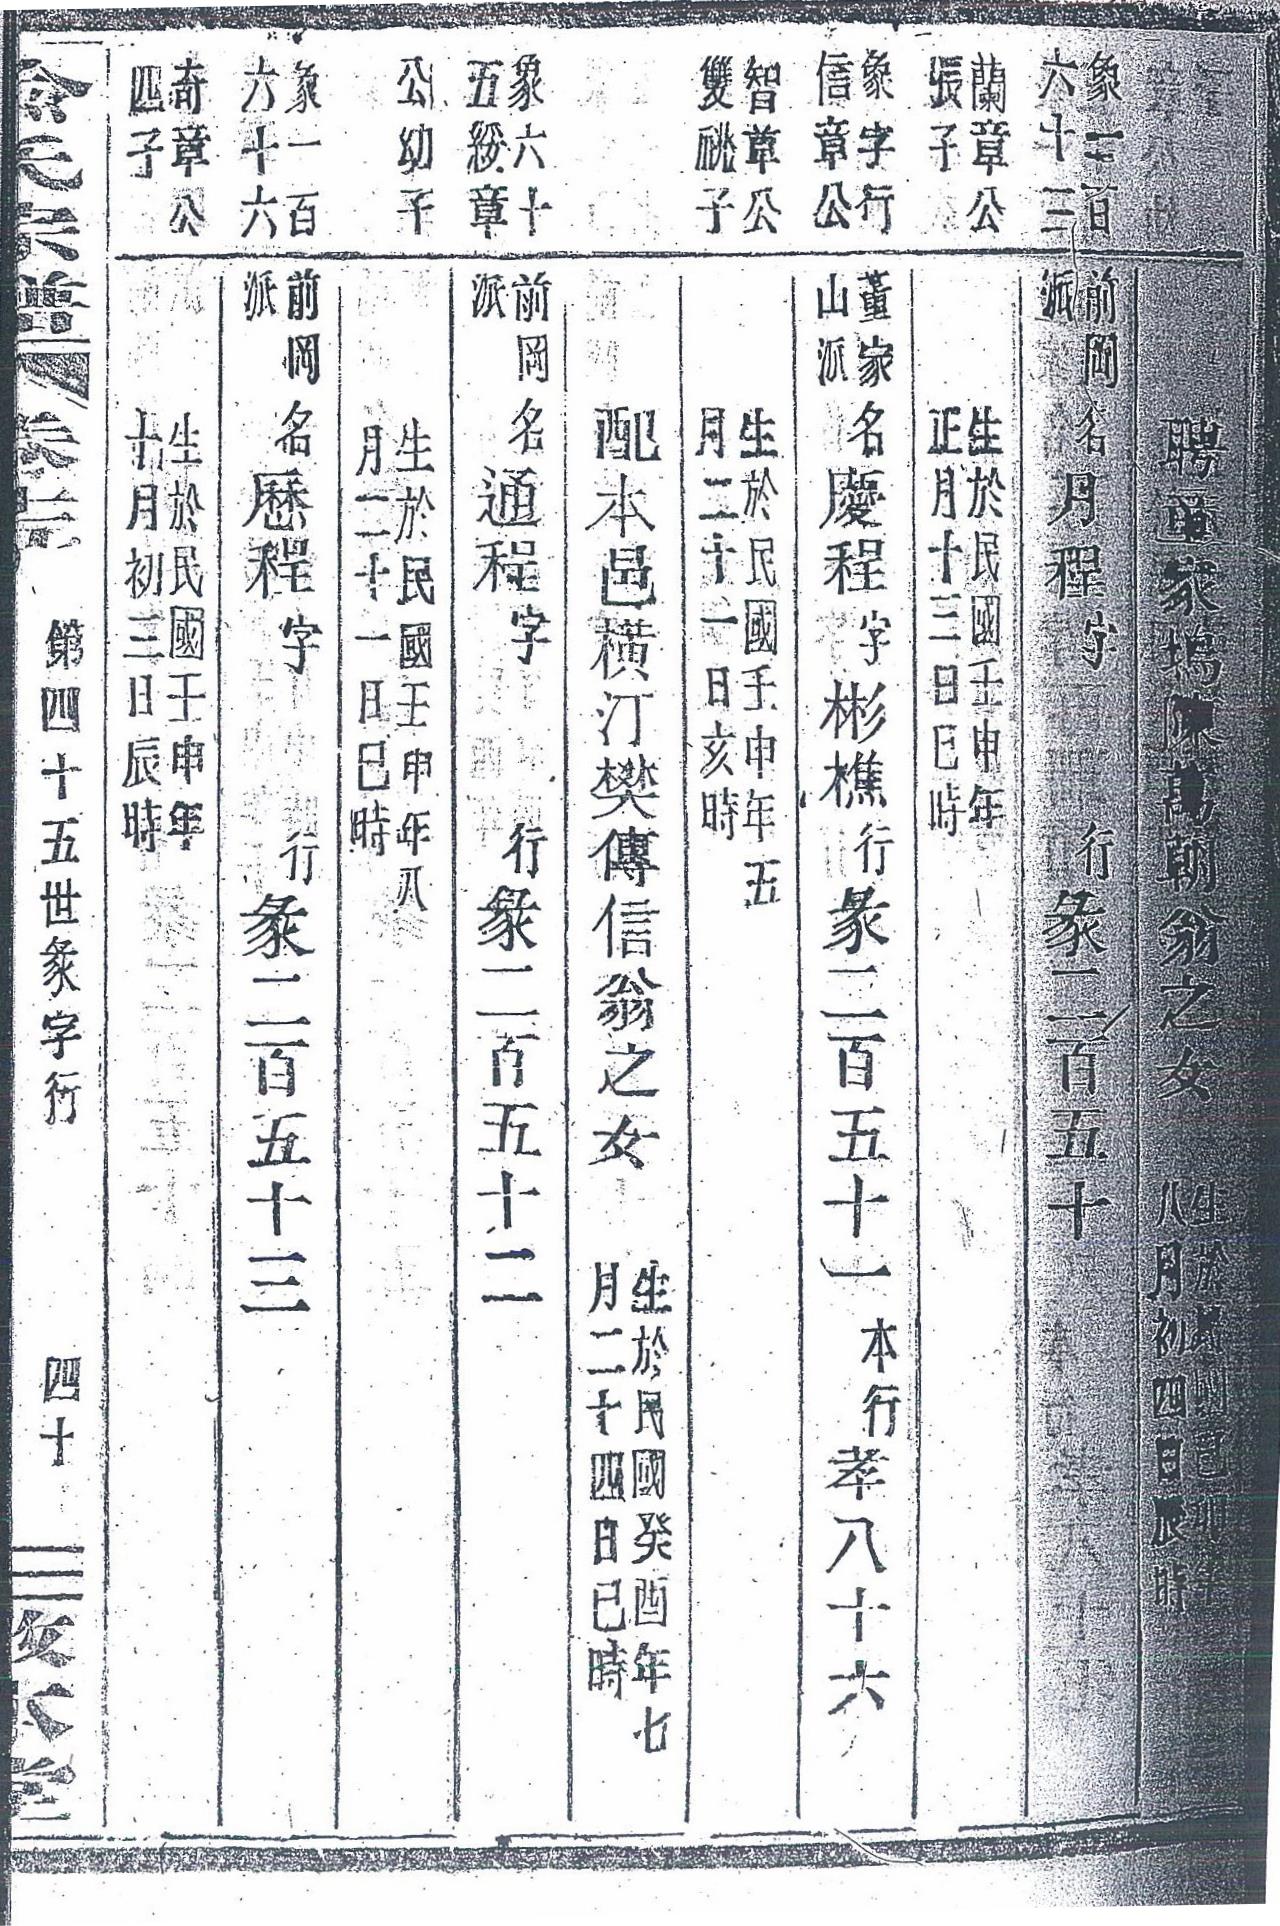 聘 家塢陳萬朝翁之女
生於民國己卯年
八月初四日辰時
象一百
六十三
前岡
派
名月程字 行彖二百五十
蘭章公
張子
生於民國壬申年
正月十三日巳時
象字行
信章公
董家
山派
名慶程字彬樵行彖二百五十一 本行孝八十六
智章公
雙祧子
生於民國壬申年五
月二十一日亥時
配本邑橫汀樊傳信翁之女
生於民國癸酉年七
月二十四日巳時
象六十
五綬章
前岡
派
名通程字 行彖二百五十二
公幼子
生於民國壬申年八
月二十一日巳時
象一百
六十六
前岡
派
名歷程字 行彖二百五十三
奇章公
四子
生於民國壬申年
十月初三日辰時
第四十五世彖字行 四十